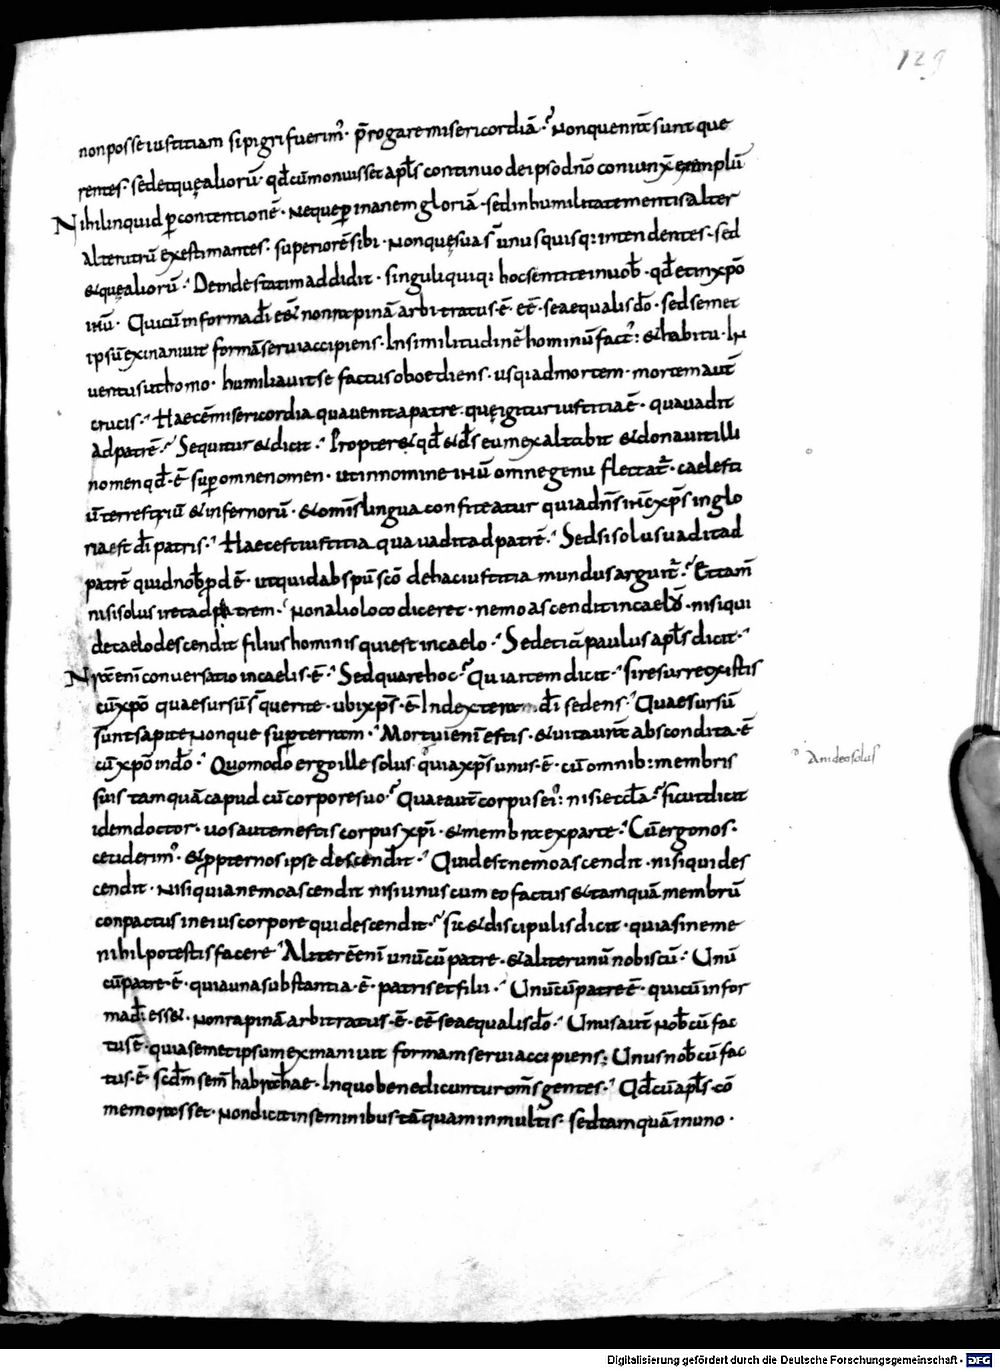 129
non posse iustitiam si pigri fuerim᾽· p̄rogare misericordiā·᾽ Non quę nr̄ā sunt que
rentes· sed et quę aliorū· qd̄ cū monuisset apl̄s continuo de ipso dn̄o coniunx̄ exemplū
Nihil inquid p̲ contentionē· neque p̲ inanem gloriā· sed in humilitate mentis alter
alterutrū exestimantes· superiorē sibi· Non quę sua s̄ unusquisq: intendentes· sed
& quę aliorū·᾽ Deinde statim addidit· singuli quiq: hoc sentite in uob̄· qd̄ et in xp̄o
ihū· Qui cū in forma dī ess& non rapinā arbitratus· ē· eē· se aequalis dō· sed semet
ipsū exinaniuit formā serui accipiens· In similitudinē hominū fact᾽: & habitu· In
uentus ut homo· humiliauit se factus oboediens· usq: ad mortem· mortem aut̄
crucis·᾽ Haec ē misericordia qua uenit a patre· quę igitur iustitia ē· qua uadit
ad patrē·᾽ Sequitur & dicit·᾽ Propter & qd̄ & d̄s eum exaltabit & donauit illi
nomen qd̄· ē sup̲ omne nomen· ut in nomine ihū omne genu flectat᾽· caelesti
ū terrestriū & infernorū· & omīs lingua confiteatur quia dn̄s ih̄c xp̄s in glo
ria est dī patris·᾽ Haec est iustitia qua uadit ad patrē·᾽ Sed si solus uadit ad
patrē quid nob̄ p̲d ē· ut quid ab spū sc̄o de hac iustitia mundus arguit᾽·᾽ Et tam̄
nisi solus iret ad patrem·᾽ Non alio loco diceret· nemo ascendit in caelū· nisi qui
de caelo descendit filius hominis qui est in caelo·᾽ Sed etiā paulus apl̄s dicit·᾽
Nr̄ā enī conuersatio in caelis· ē·᾽ Sed quare hoc·᾽ Quia item dicit·᾽ si resurrexistis
cū xp̄o quae sursū s̄ querite· ubi xp̄s· ē· In dextera dī sedens·᾽ Quae sursū
sunt sapite non que sup̲ terram·᾽ Mortui enī estis· & uita ur̄ā abscondita· ē
cū xp̄o in dō·᾽ Quomodo ergo ille solus· quia xp̄s unus· ē· cū omnib: membris
suis tamquā capud cū corpore suo·᾽ Quae aut̄ corpus ei᾽: nisi etcl̄a·᾽ sicut dicit
idem doctor· uos autem estis corpus xp̄i· & membra ex parte·᾽ Cū ergo nos·
ceciderim᾽· & p̲pter nos ipse descendit·᾽ Quid est nemo ascendit· nisi qui des
cendit· Nisi quia nemo ascendit nisi unus cum eo factus & tamquā membrū
conpactus in eius corpore qui descendit·᾽ sic & discipulis dicit· quia sine me
nihil potestis facere·᾽ Aliter ē enī unū cū patre· & aliter unū nobiscū·᾽ Unū
cū patre· ē· quia una substantia· ē· patris et filii·᾽ Unū cū patre ē· qui cū in for
ma dī ess&· Non rapinā arbitratus· ē· eē se aequalis dō·᾽ Unus aut̄ nob̄ cū fac
tus ē· quia semet ipsum exinaniuit formam serui accipiens: Unus nob̄ cū fac
tus· ē· scdm̄ sem̄ habrahae· In quo benedicuntur om̄s gentes·᾽ Qd̄ cū apl̄s cō
memorasset· Non dicit in seminibus tā quam in multis· sed tamquā in uno·
A᾽n ideo solus
Digitalisierung gefördert durch die Deutsche Forschungsgemeinschaft - DFG